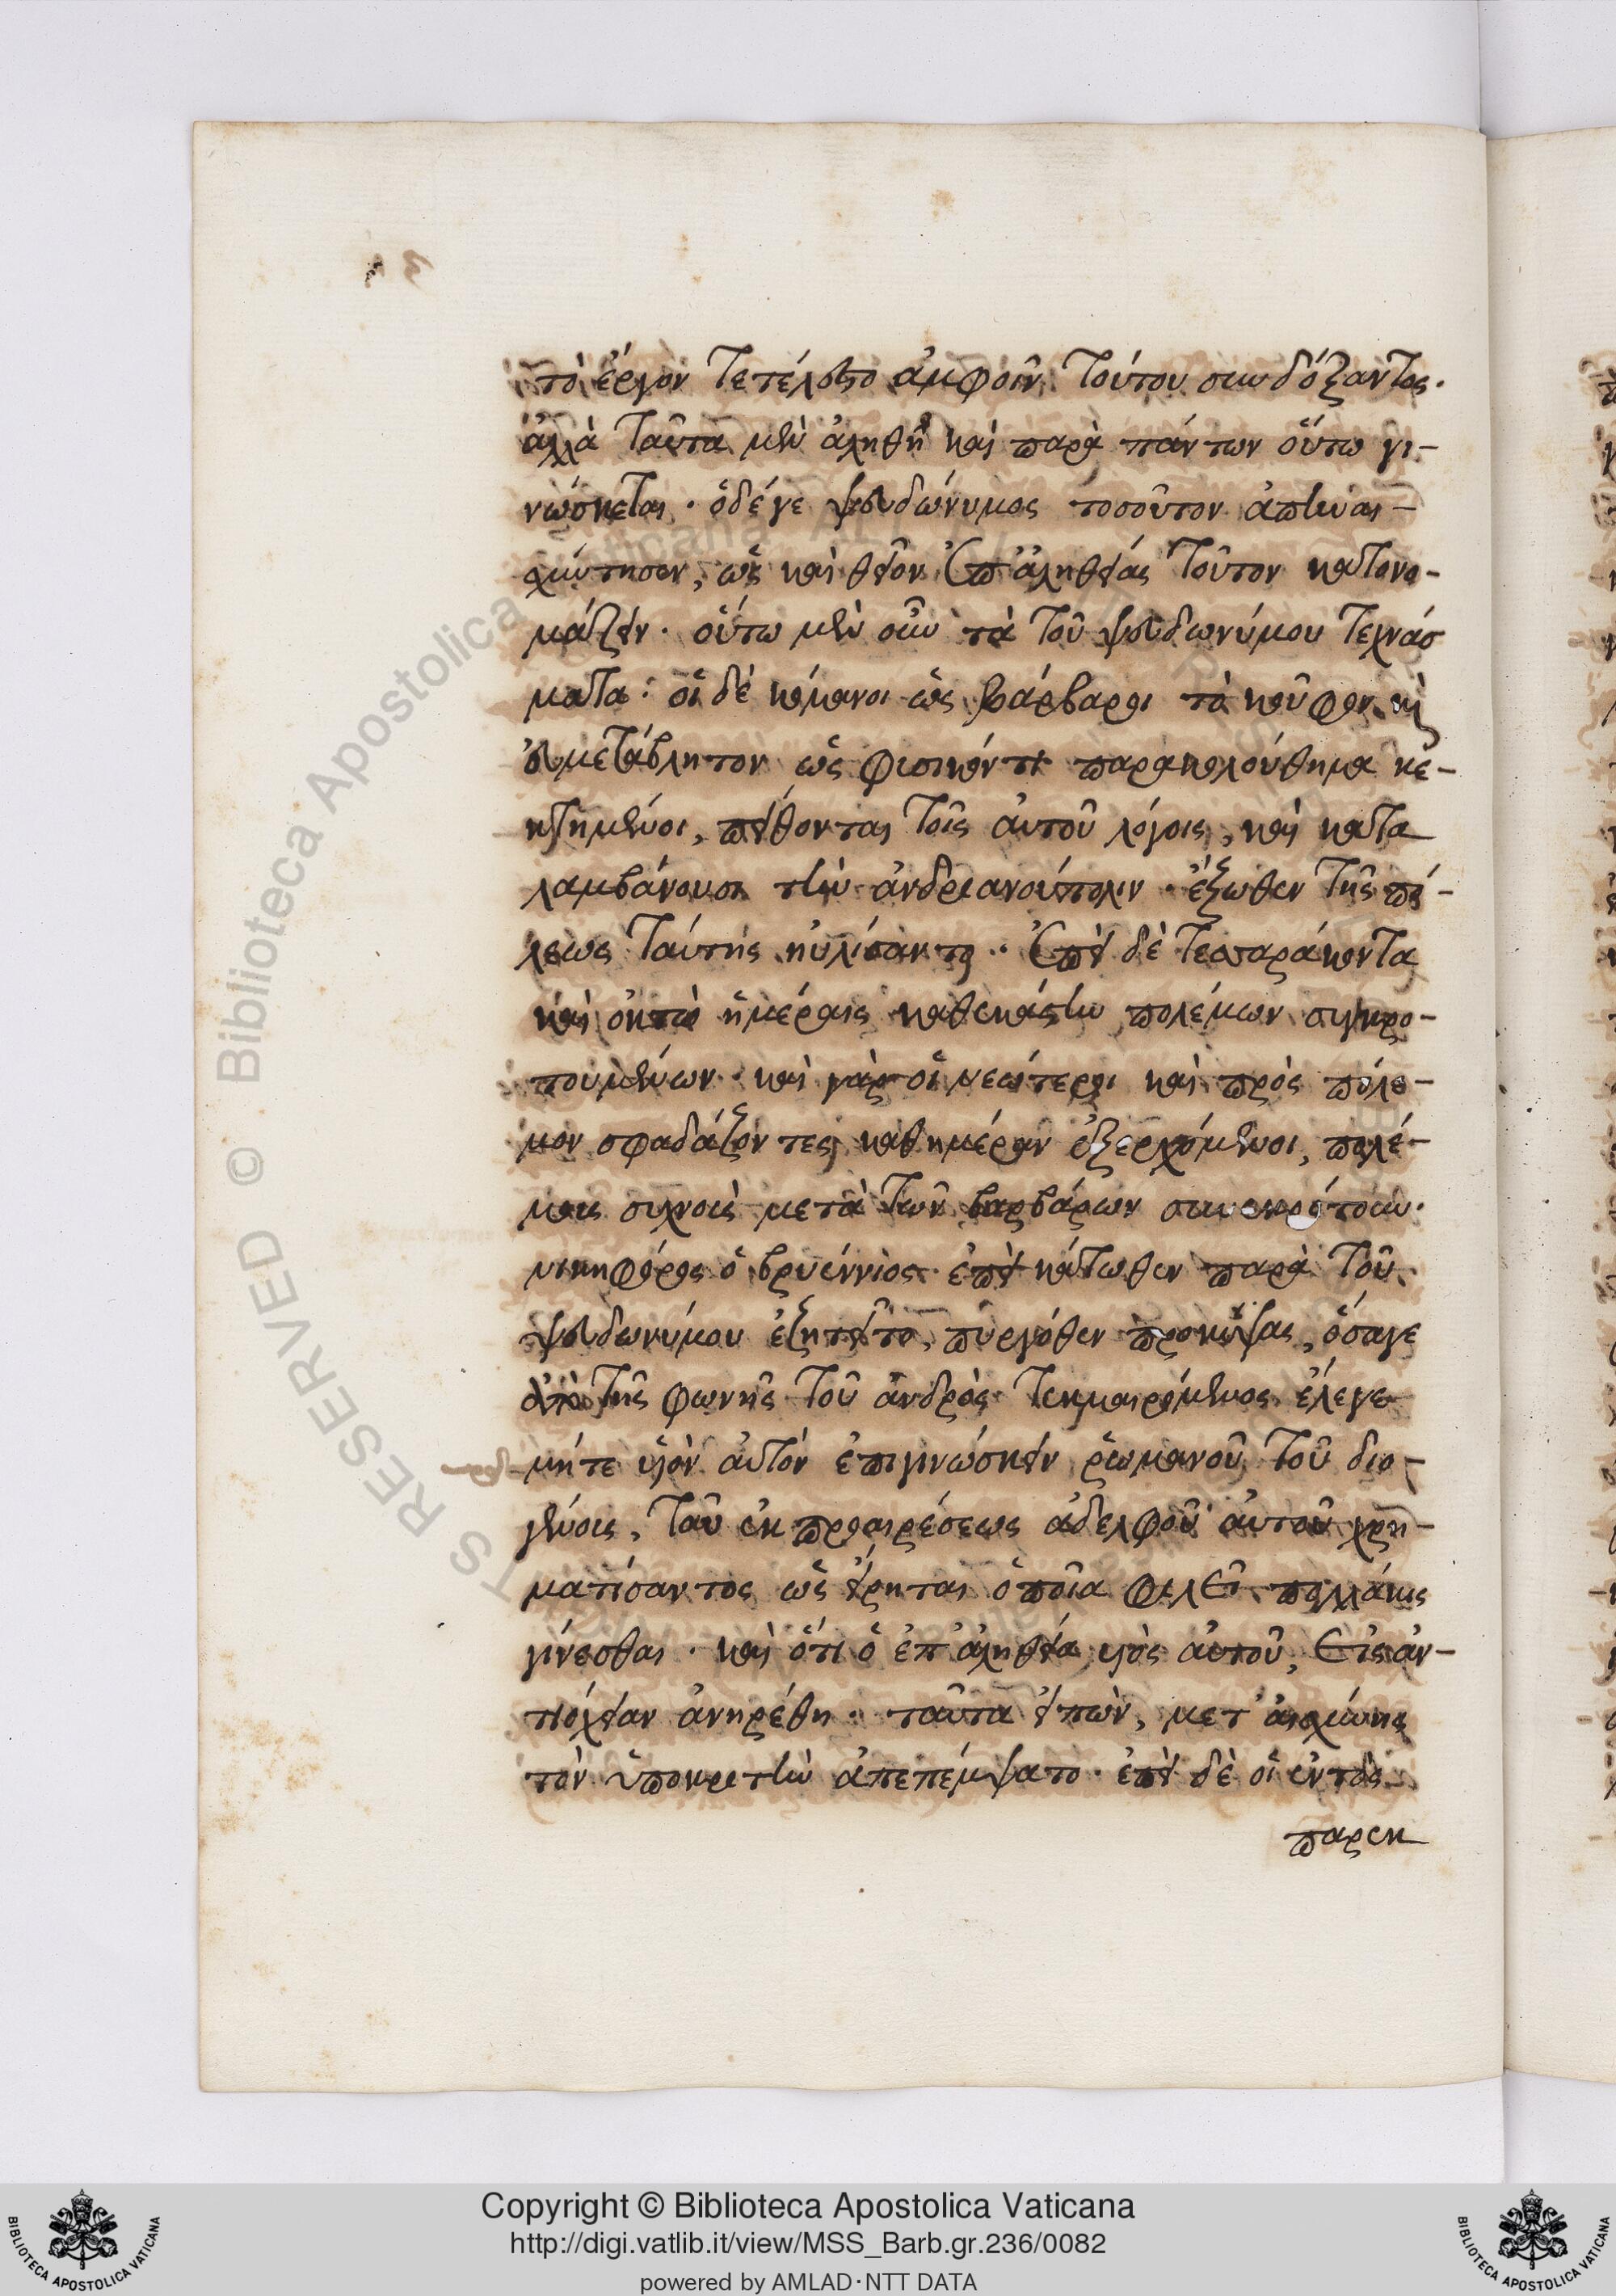 τὸ ἔργον τετέλεστο ἀμφοῖν τούτου συνδόξαντος.
ἀλλὰ ταῦτα μὲν ἀληθῆ καὶ παρὰ πάντων οὕτω γι-
νώσκεται · ὁδέγε ψευδώνυμος τοσοῦτον ἀπηναι-
σχύντησεν, ὡς καὶ θεῖον ἐπ' ἀληθείας τοῦτον κατονο-
μάζειν · οὕτω μὲν οὖν τὰ τοῦ ψευδωνύμου τεχνάσ
ματα : οἱ δὲ κόμανοι ὡς βάρβαροι τὸ κοῦφον καὶ
εὐμετάβλητον ὡς φυσικόν τι παρακολούθημα κε-
κτημένοι, πείθονται τοῖς αὐτοῦ λόγοις, καὶ κατα
λαμβάνουσι τὴν ἀνδριανούπολιν · ἔξωθεν τῆς πό-
λεως ταύτης ηὐλίσαντο · ἐπεὶ δὲ τεσσαράκοντα
καὶ ὀκτὼ ἡμέραις καθεκάστην πολέμων συγκρο-
τουμένων · καὶ γὰρ οἱ νεώτεροι καὶ πρὸς πόλε-
μον σφαδάζοντες καθημέραν ἐξερχόμενοι, πολέ-
μοις συχνοῖς μετὰ τῶν βαρβάρων συνεκρότουν.
νικηφόρος ὁ βρυέννιος ἐπεὶ κάτωθεν παρὰ τοῦ
ψευδωνύμου ἐζητεῖτο, πυργόθεν προκύψας, ὅσαγε
ἀπὸ τῆς φωνῆς τοῦ ἀνδρὸς τεκμαιρόμενος ἔλεγε
μήτε υἱὸν αὐτὸν ἐπιγινώσκειν ῥωμανοῦ τοῦ διο-
γένοις, τοῦ ἐκ προαιρέσεως ἀδελφοῦ αὐτοῦ χρη-
ματίσαντος ὡς εἴρηται ὁποῖα φιλεῖ πολλάκις
γίνεσθαι · καὶ ὅτι ὁ ἐπ' ἀληθεία υἱὸς αὐτοῦ, εἰς ἀν-
τιόχειαν ἀνηρέθη · ταῦτα εἰπὼν, μετ' αἰσχύνης
τὸν ὑποκριτὴν ἀπεπέμψατο · ἐπεὶ δὲ οἱ ἐντὸς
παρεκ
Copyright © Biblioteca Apostolica Vaticana
http://digi.vatlib.it/view/MSS_Barb.gr.236/0082
powered by AMLAD·NTT DATA